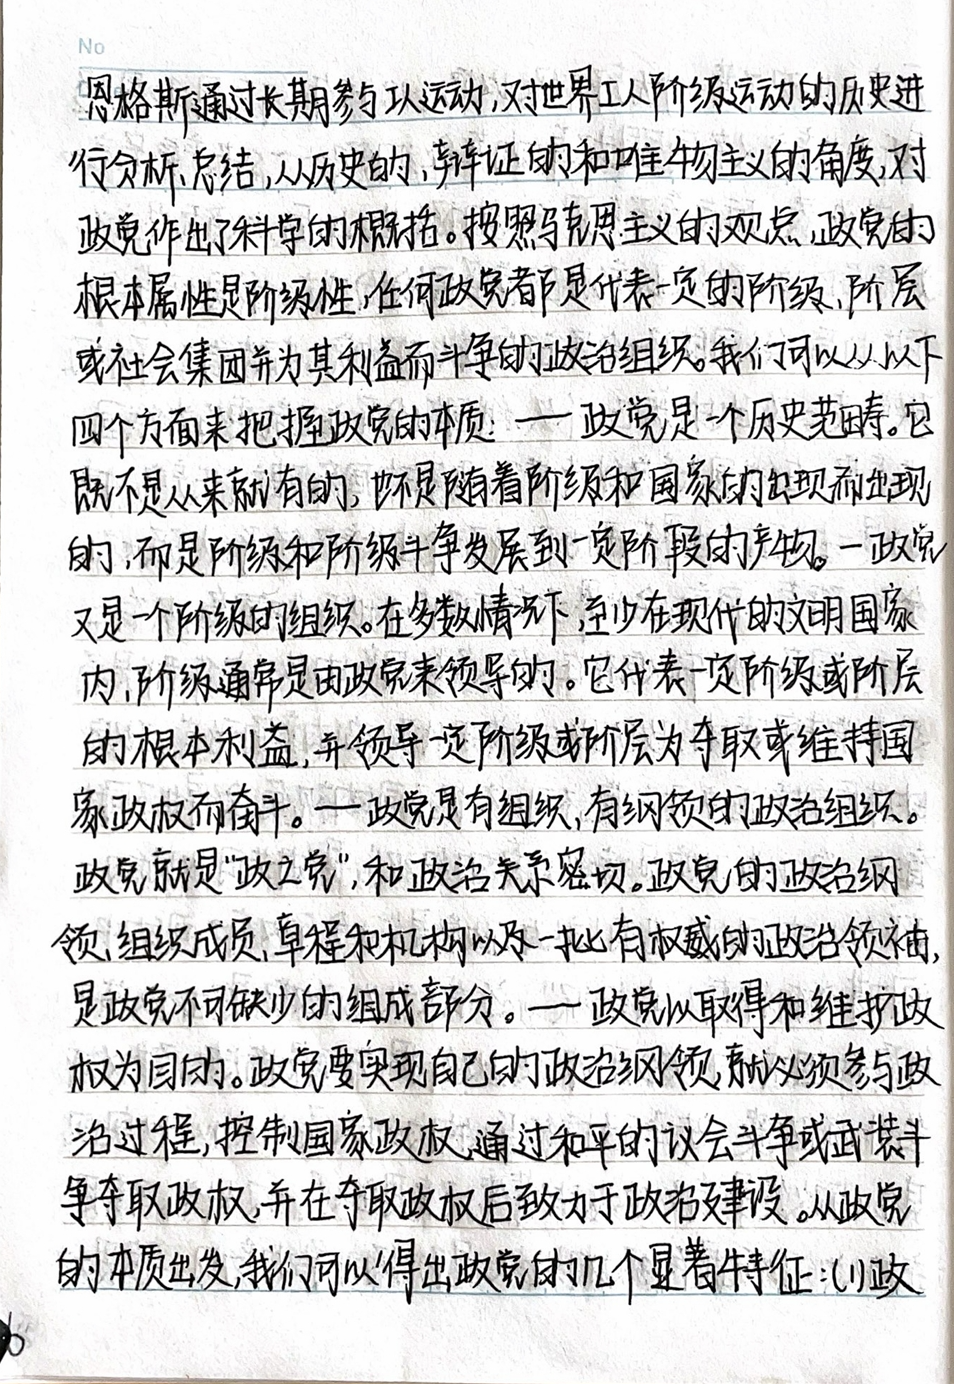 No
恩格斯通过长期参与工人运动,对世界工人阶级运动的历史进
行分析、总结,从历史的、辩证的和唯物主义的角度,对
政党作出了科学的概括。按照马克思主义的观点,政党的
根本属性是阶级性,任何政党都是代表一定的阶级、阶层
或社会集团并为其利益而斗争的政治组织。我们可以从以下
四个方面来把握政党的本质: 一 政党是一个历史范畴。它
既不是从来就有的,也不是随着阶级和国家的出现而出现
的,而是阶级和阶级斗争发展到一定阶段的产物。一政党
又是一个阶级的组织。在多数情况下,至少在现代的文明国家
内,阶级通常是由政党来领导的。它代表一定阶级或阶层
的根本利益,并领导一定阶级或阶层为夺取或维持国
家政权而奋斗。一政党是有组织,有纲领的政治组织。
政党就是“政之党”,和政治关系密切。政党的政治纲
领、组织成员、章程和机构以及一批有权威的政治领袖,
是政党不可缺少的组成部分。一 政党以取得和维护政
权为目的。政党要实现自己的政治纲领,就必须参与政
治过程,控制国家政权,通过和平的议会斗争或武装斗
争夺取政权,并在夺取政权后致力于政治建设。从政党
的本质出发,我们可以得出政党的几个显著特征:(1)政
6